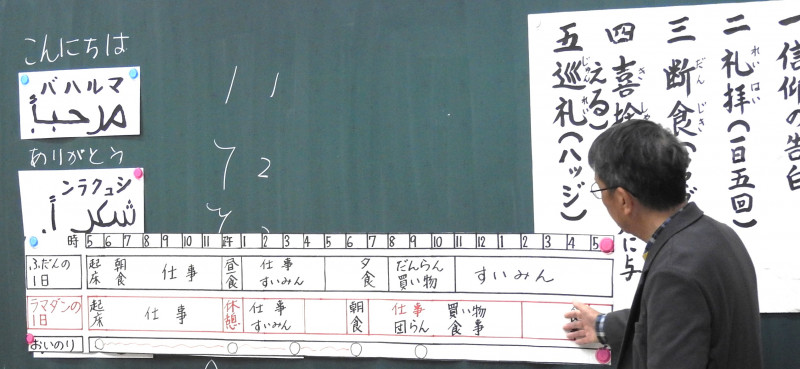 こんにちは
バハルマ
مرحبا
ありがとう
ンラクュシ
شكرا
١ 1
٢ 2
一信仰の告白
二礼拝(一日五回)
れいはい
三断食(
だんじき
四喜捨
き
える)
に与
五巡礼(ハッジ)
じゅんれい
時 5 6 7 8 9 10 11 1 2 3 4 5 6 7 8 9 10 11 12 1 2 3 4 5
ふだんの1日 起床 朝食 仕事 昼食 仕事 すいみん 夕食 だんらん 買い物 すいみん
ラマダンの1日 起床 仕事 休憩 仕事 すいみん 朝食 仕事 団らん 買い物 食事
おいのり